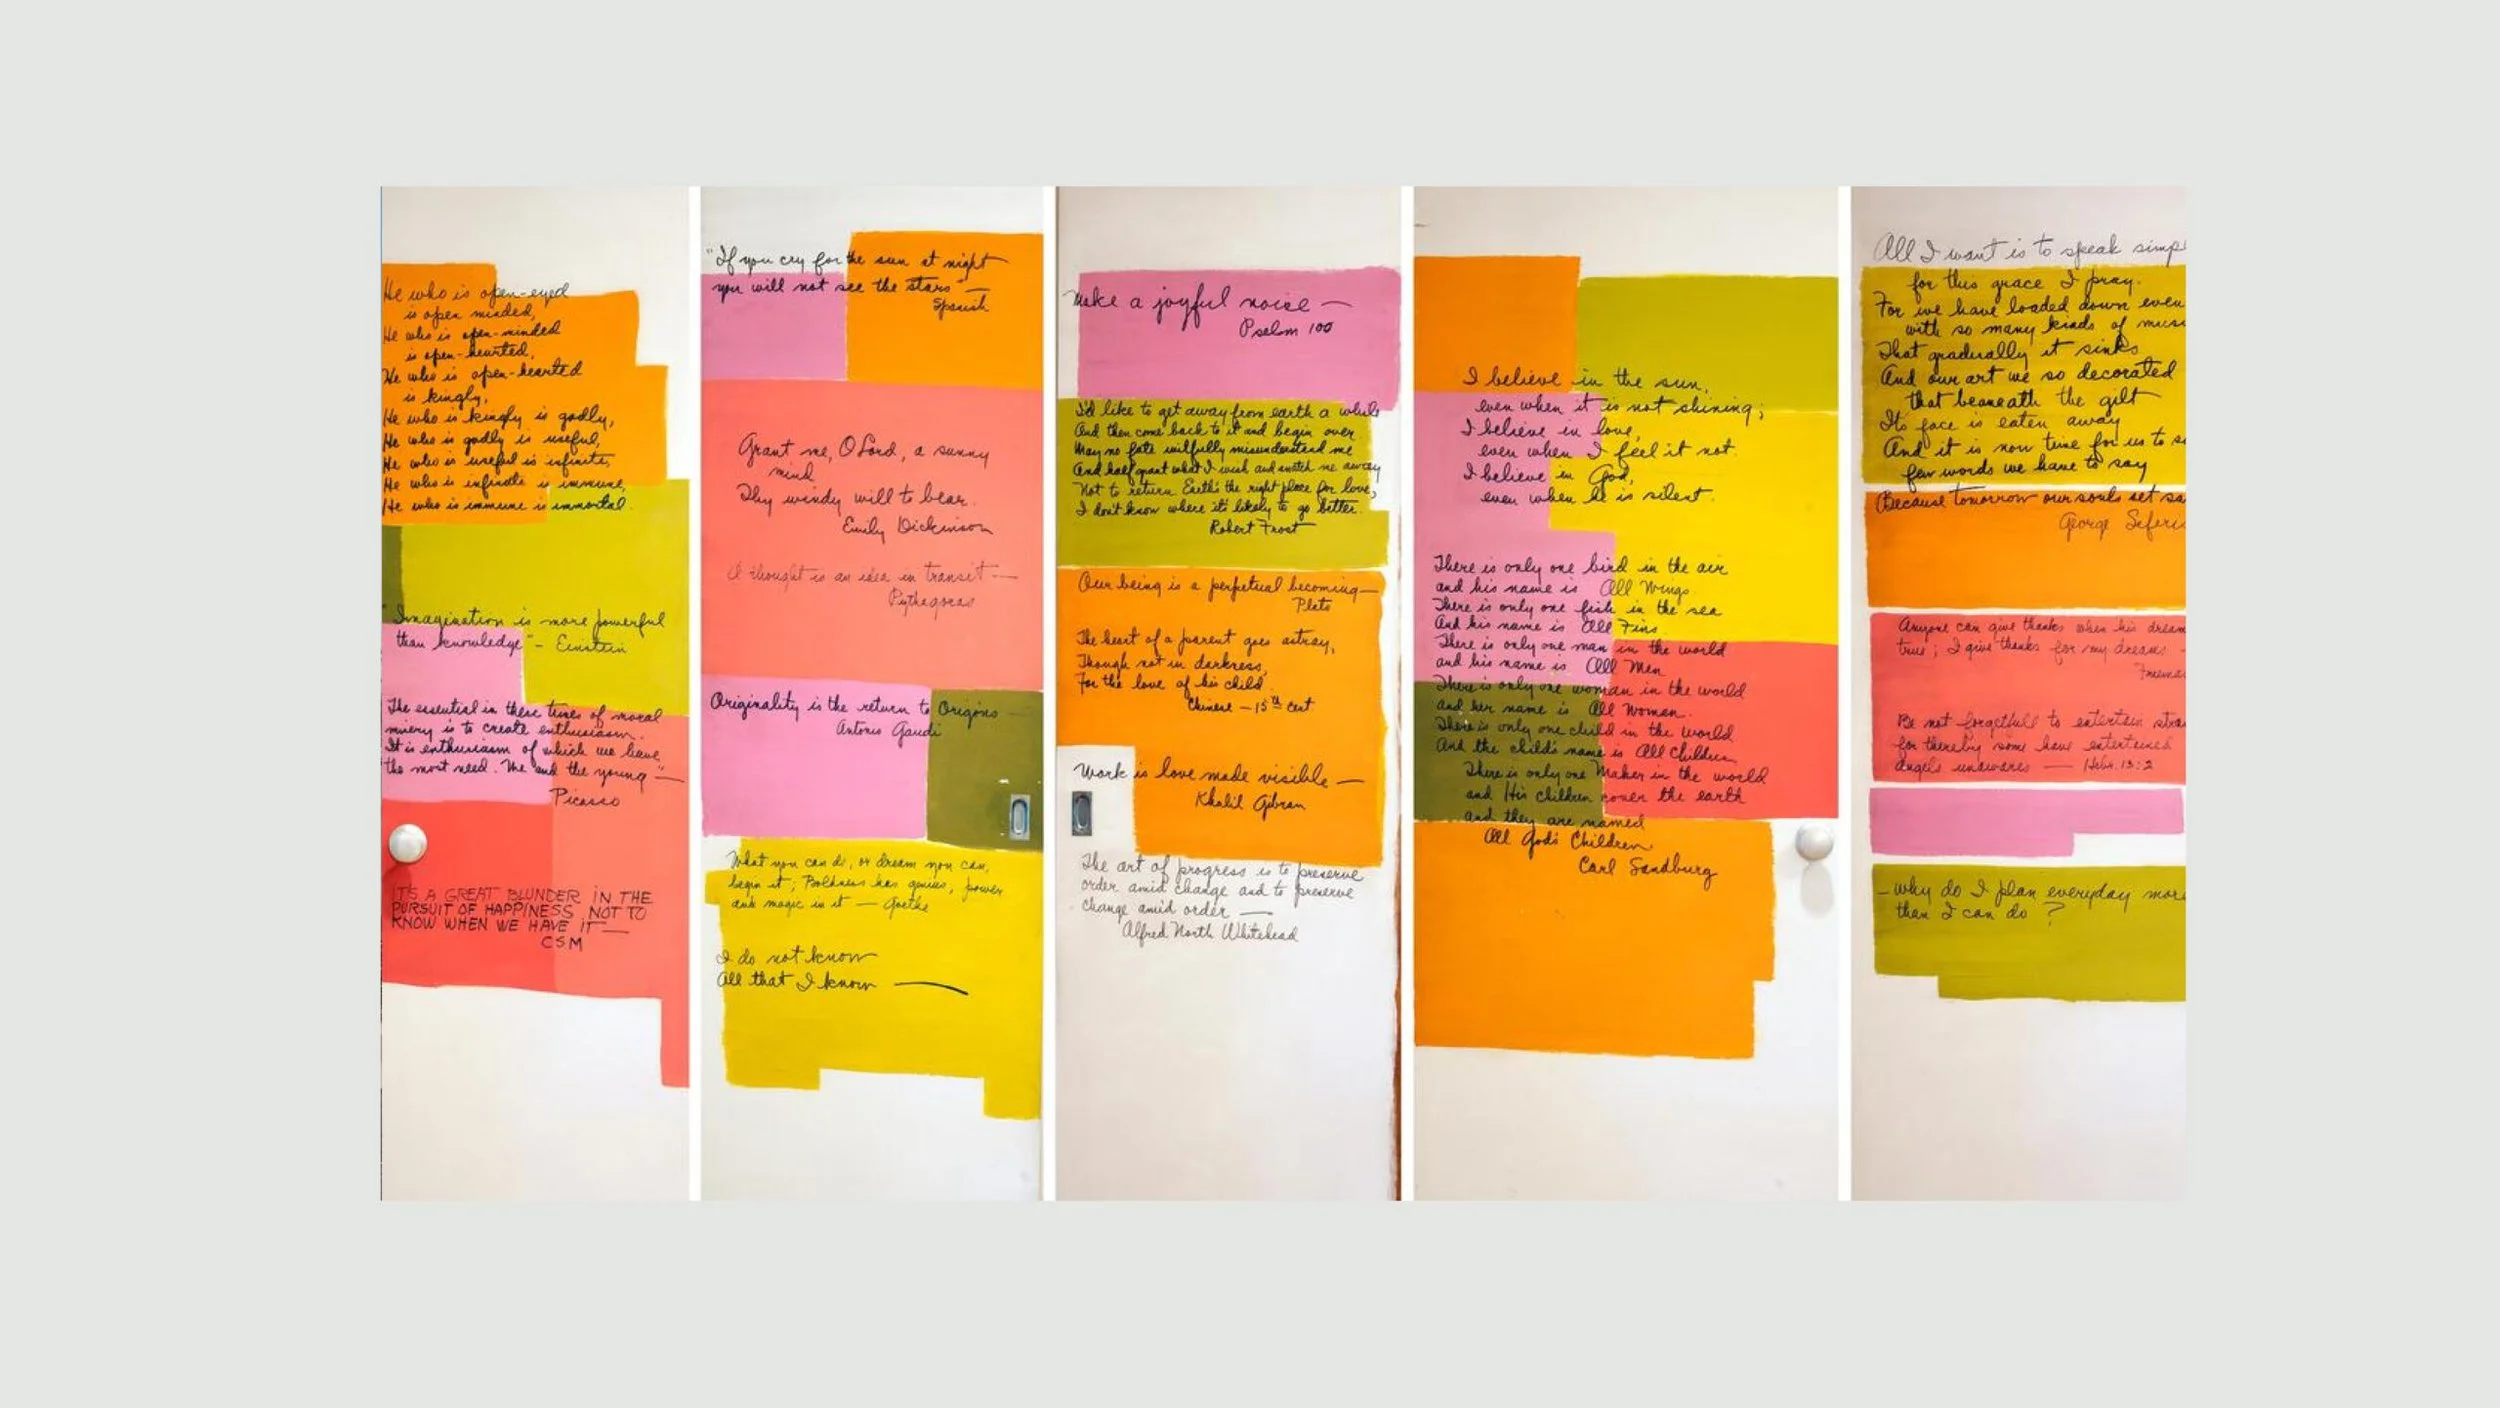 He who is open-eyed
is open minded,
He who is open-minded
is open-hearted,
He who is open-hearted
is kingly,
He who is kingly is godly,
He who is godly is useful,
He who is useful is infinite,
He who is infinite is immune,
He who is immune is immortal.
"Imagination is more powerful
than knowledge" - Einstein
The essential in these times of moral
misery is to create enthusiasm.
It is enthusiasm of which we have
the most need. We and the young —"
Picasso
IT'S A GREAT BLUNDER IN THE
PURSUIT OF HAPPINESS NOT TO
KNOW WHEN WE HAVE IT —
CSM
"If you cry for the sun at night
you will not see the stars" —
Spanish
Grant me, O Lord, a sunny
mind
Thy windy will to bear.
Emily Dickinson
A thought is an idea in transit —
Pythagoras
Originality is the return to Origins
Antonio Gaudi
What you can do, or dream you can,
begin it; Boldness has genius, power
and magic in it — Goethe
I do not know
All that I know —
Make a joyful noise —
Psalm 100
I'd like to get away from earth a while
And then come back to it and begin over
May no fate willfully misunderstand me
And half grant what I wish and snatch me away
Not to return. Earth's the right place for love,
I don't know where it's likely to go better.
Robert Frost
Our being is a perpetual becoming —
Plato
The heart of a parent goes astray,
Though not in darkness,
For the love of his child
Chinese — 15th Cent
Work is love made visible —
Khalil Gibran
The art of progress is to preserve
order amid change and to preserve
change amid order —
Alfred North Whitehead
I believe in the sun,
even when it is not shining;
I believe in love,
even when I feel it not.
I believe in God,
even when he is silent.
There is only one bird in the air
and his name is All Wings.
There is only one fish in the sea
And his name is All Fins.
There is only one man in the world
and his name is All Men
There is only one woman in the world
and her name is All Woman.
There is only one child in the world
And the child's name is All Children
There is only one Maker in the world
and His children cover the earth
and they are named
All God's Children
Carl Sandburg
All I want is to speak simp
for this grace I pray.
For we have loaded down even
with so many kinds of music
That gradually it sinks
And our art we so decorated
that beneath the gilt
Its face is eaten away
And it is now time for us to s
few words we have to say
Because tomorrow our souls set sa
George Seferi
Anyone can give thanks when his dream
true"; I give thanks for my dreams -
Freema
Be not forgetfull to entertain stra
for thereby some have entertained
angels unawares — Hebr. 13:2
- why do I plan everyday more
than I can do ?